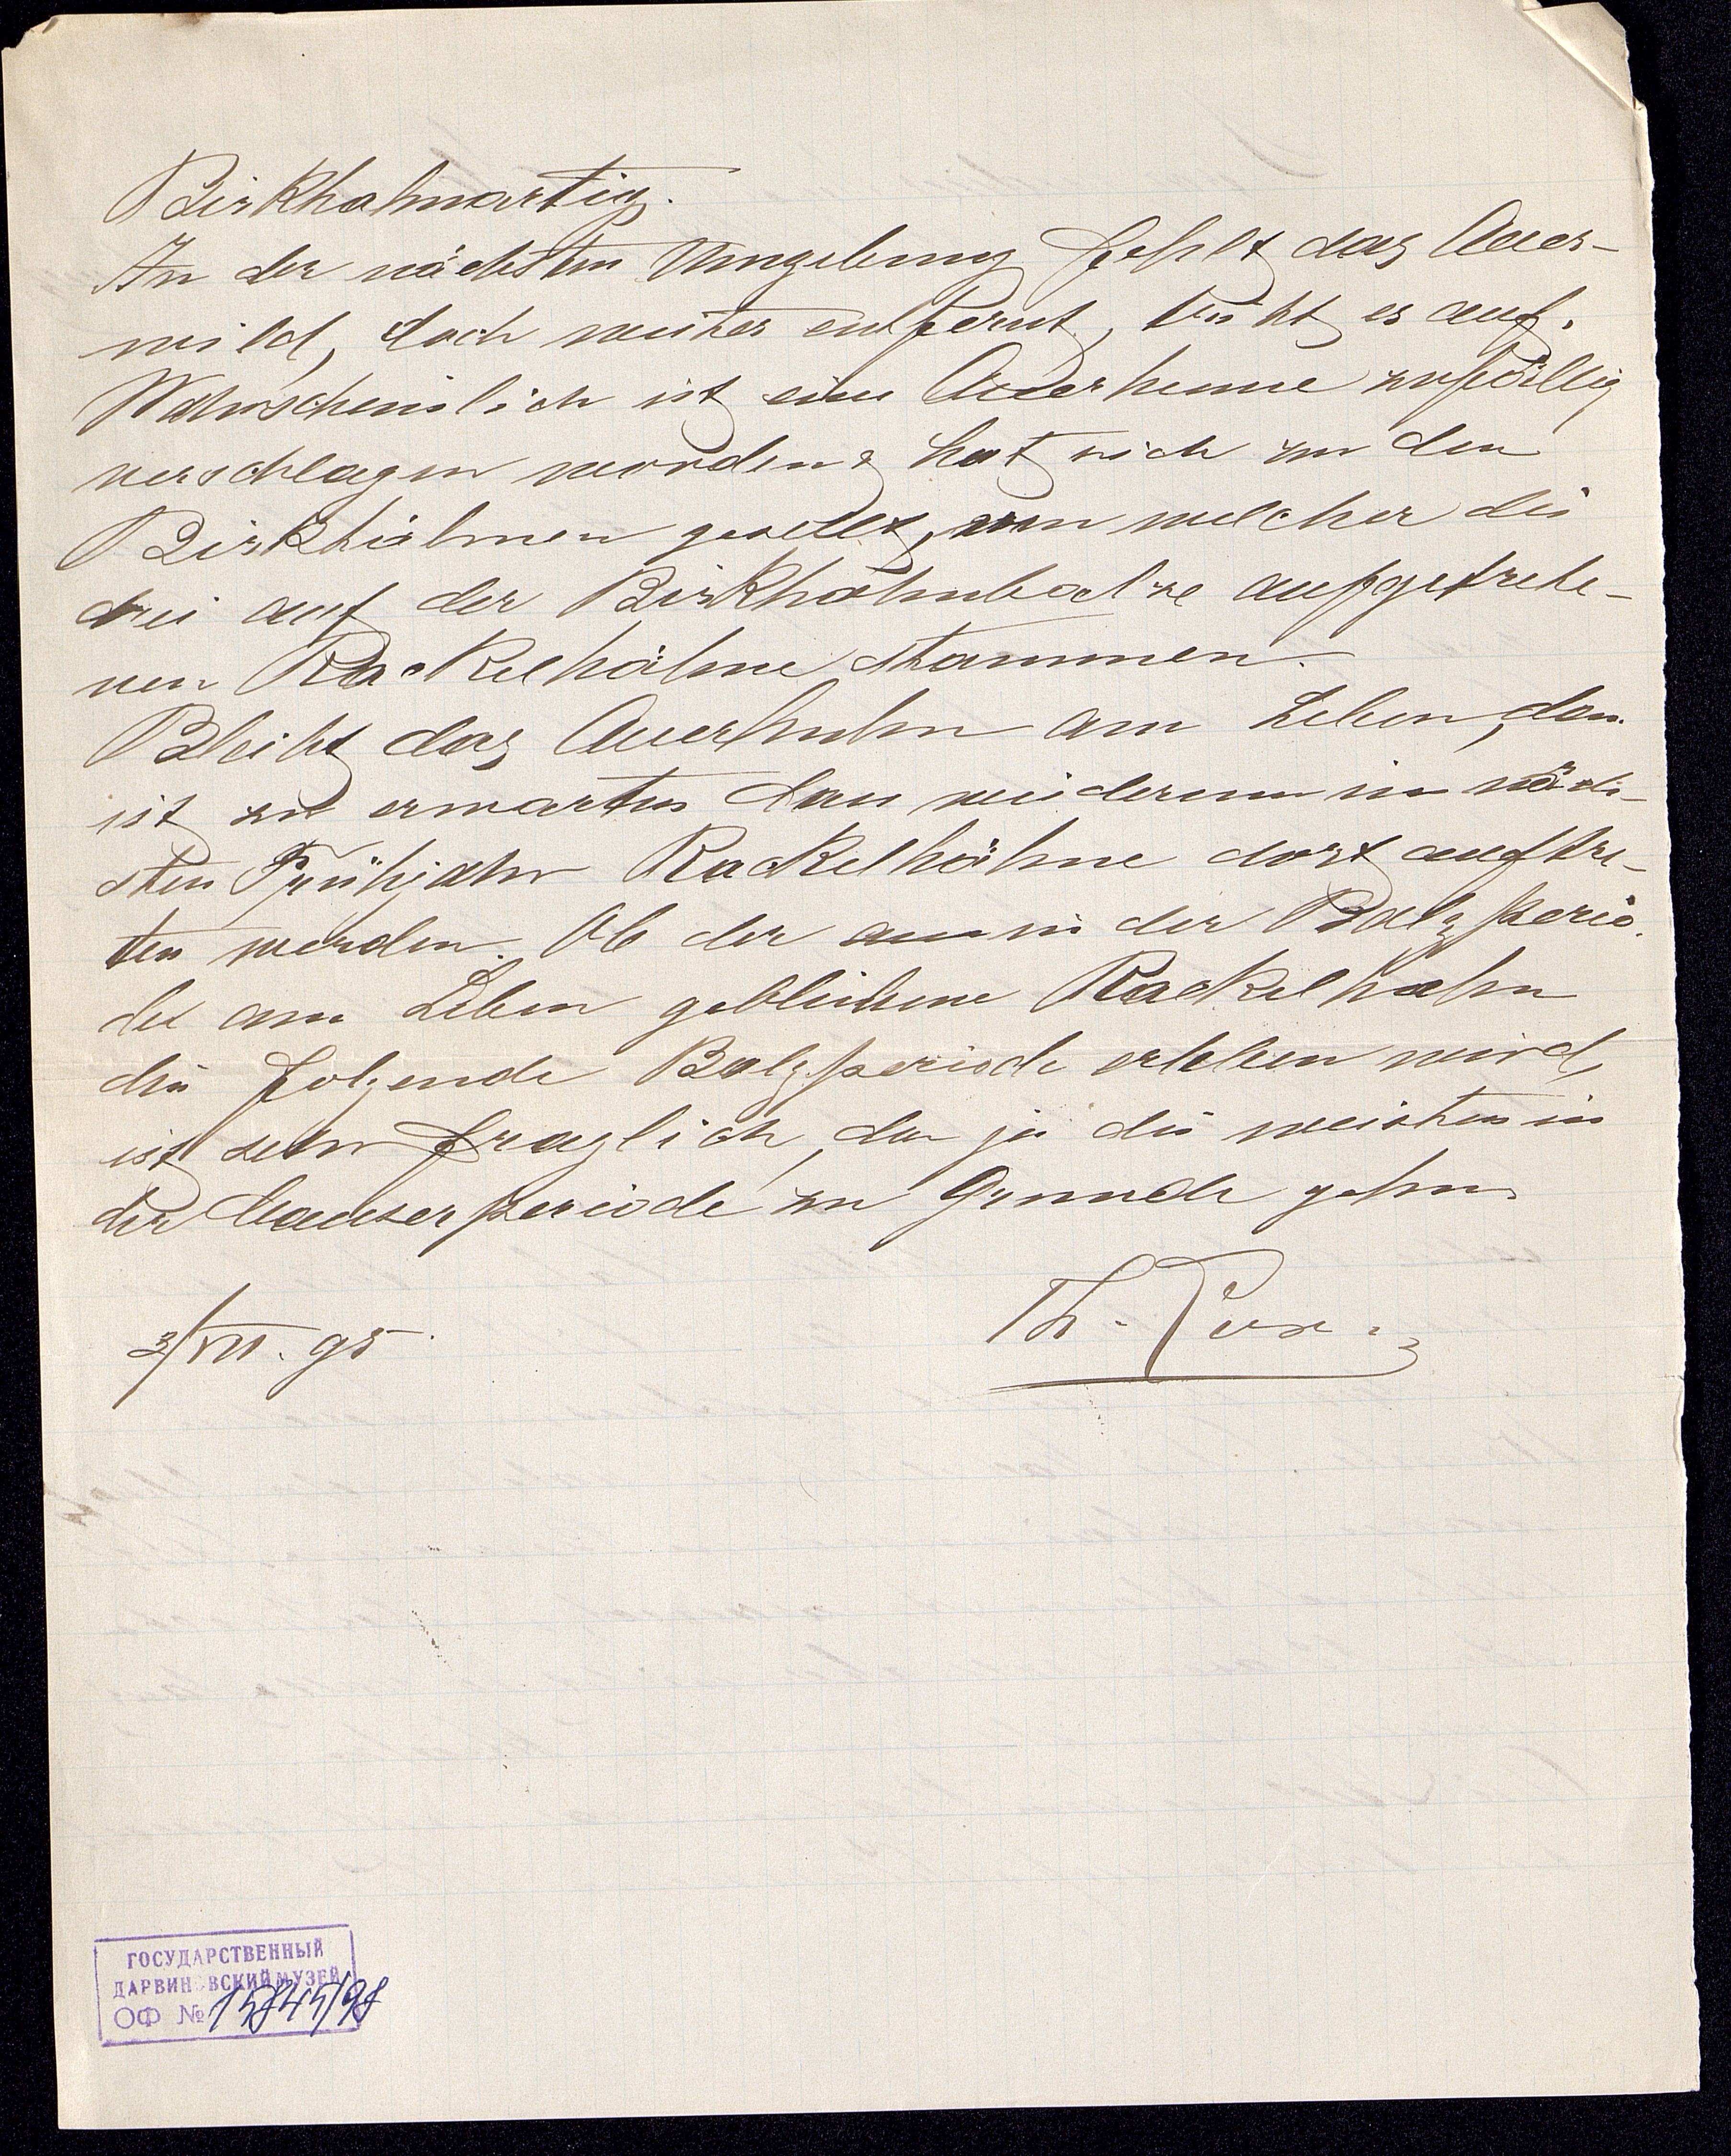 Birkhahnartig.
In der nächsten Umgebung fehlt das Auer-
wild, doch weiter entfernt, tritt es auf.
Wahrscheinlich ist eine Auerhenne zufällig
verschlagen worden & hat sich zu den
Birkhähnen gesellt, von welcher die
drei auf der Birkhahnbalze aufgetrete-
nen Rackelhähne stammen.
Bleibt das Auerhuhn am Leben, dan
ist zu erwarten dass wiederum im näch-
sten Frühjahr Rackelhähne dort auftre-
ten werden. Ob der in der Balzperio-
de am Leben gebliebene Rackelhahn
die folgende Balzperiode erleben wird,
ist sehr fraglich, da ja die meisten in
der Mauserperiode zu Grunde gehen.
3/VII. 95. Th.
ГОСУДАРСТВЕННЫЙ
ДАРВИНОВСКИЙ МУЗЕЙ
ОФ № 15845/98